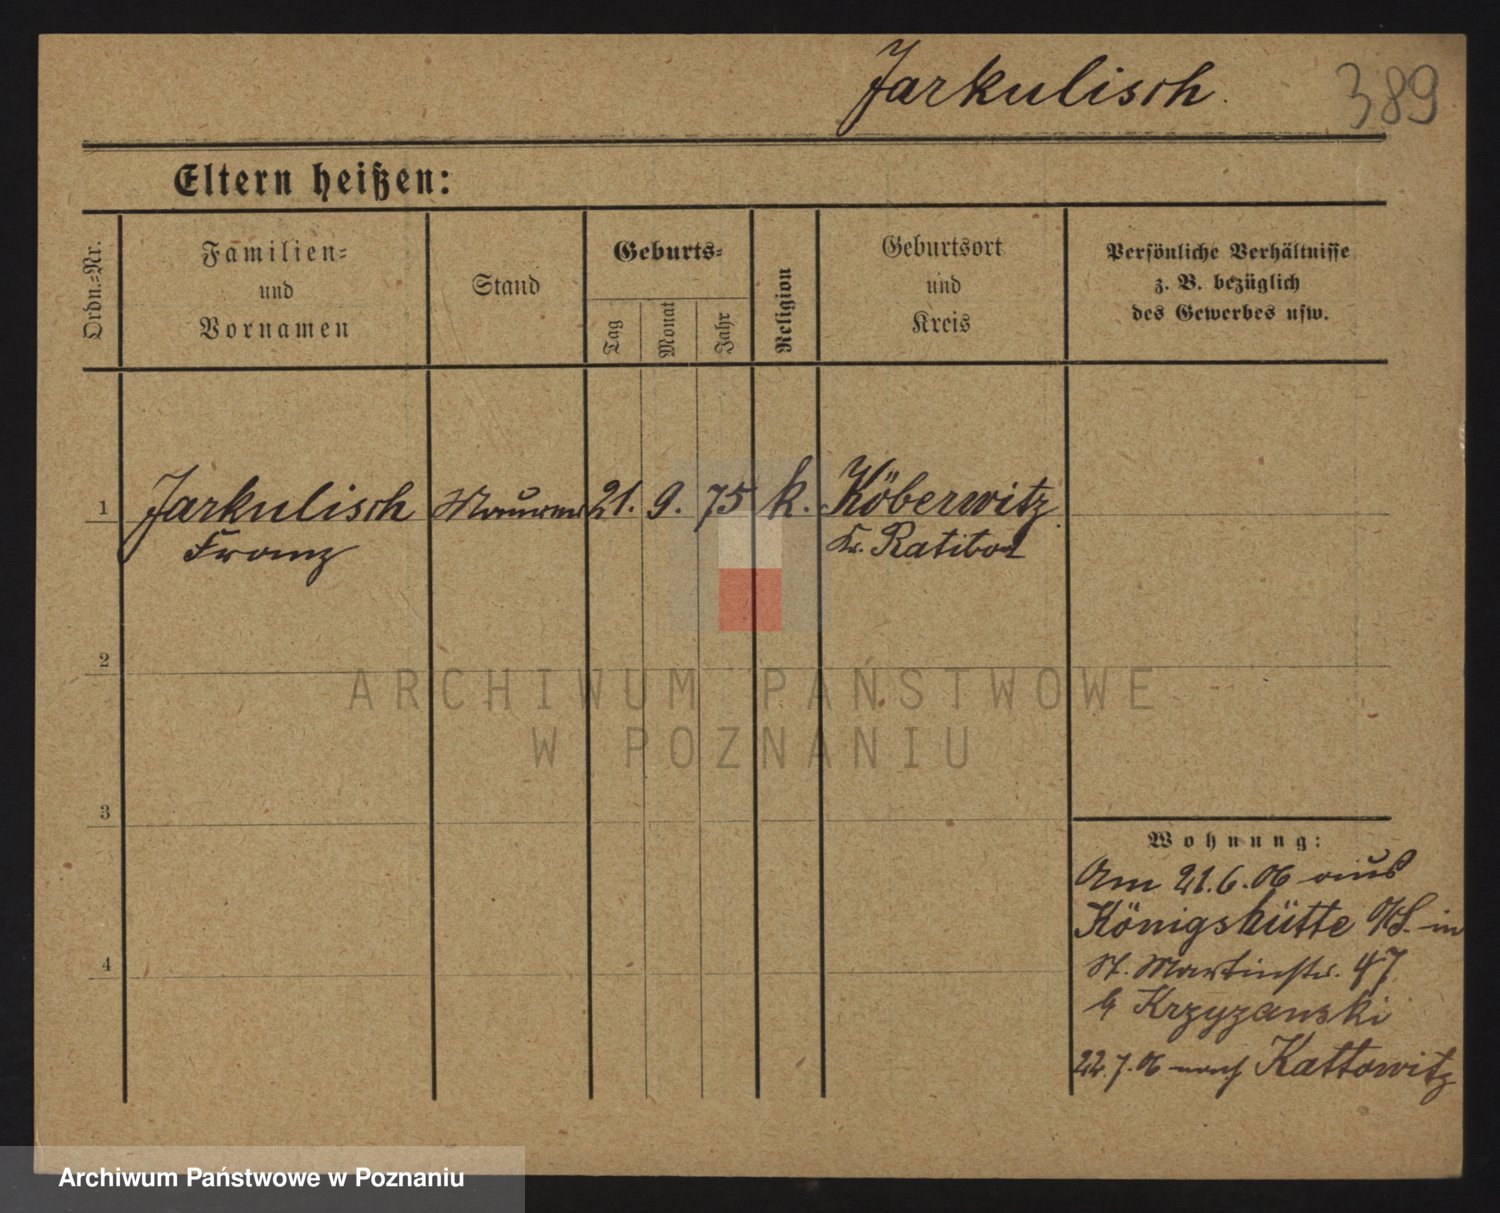 Jarkulisch.
389
Eltern heißen:
Ordn.=Nr.
Familien=
und
Vornamen
Stand
Geburts=
Tag
Monat
Jahr
Religion
Geburtsort
und
Kreis
Persönliche Verhältnisse
z. B. bezüglich
des Gewerbes usw.
1
Jarkulisch
Franz
Maurer
21.
9.
75
k.
Köberwitz
Kr. Ratibor
2
ARCHIWUM PAŃSTWOWE
W POZNANIU
3
4
Wohnung:
Am 21.6.06 aus
Königshütte O/S. in
St. Martinstr. 47
b Krzyzanski
22.7.06 nach Kattowitz
Archiwum Państwowe w Poznaniu